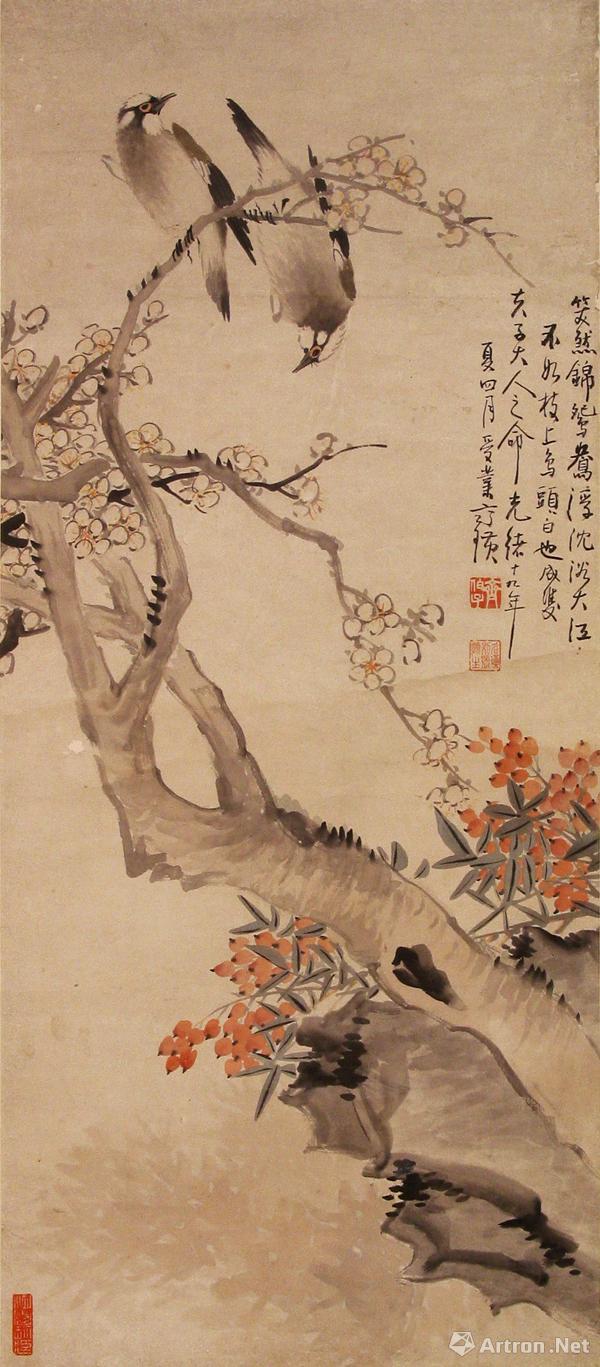 笑然錦鴛鴦浮沈浴大江
不如枝上鳥頭白也成雙
夫子大人之命光緒十九年
夏四月受業亨璜
Artron.Net